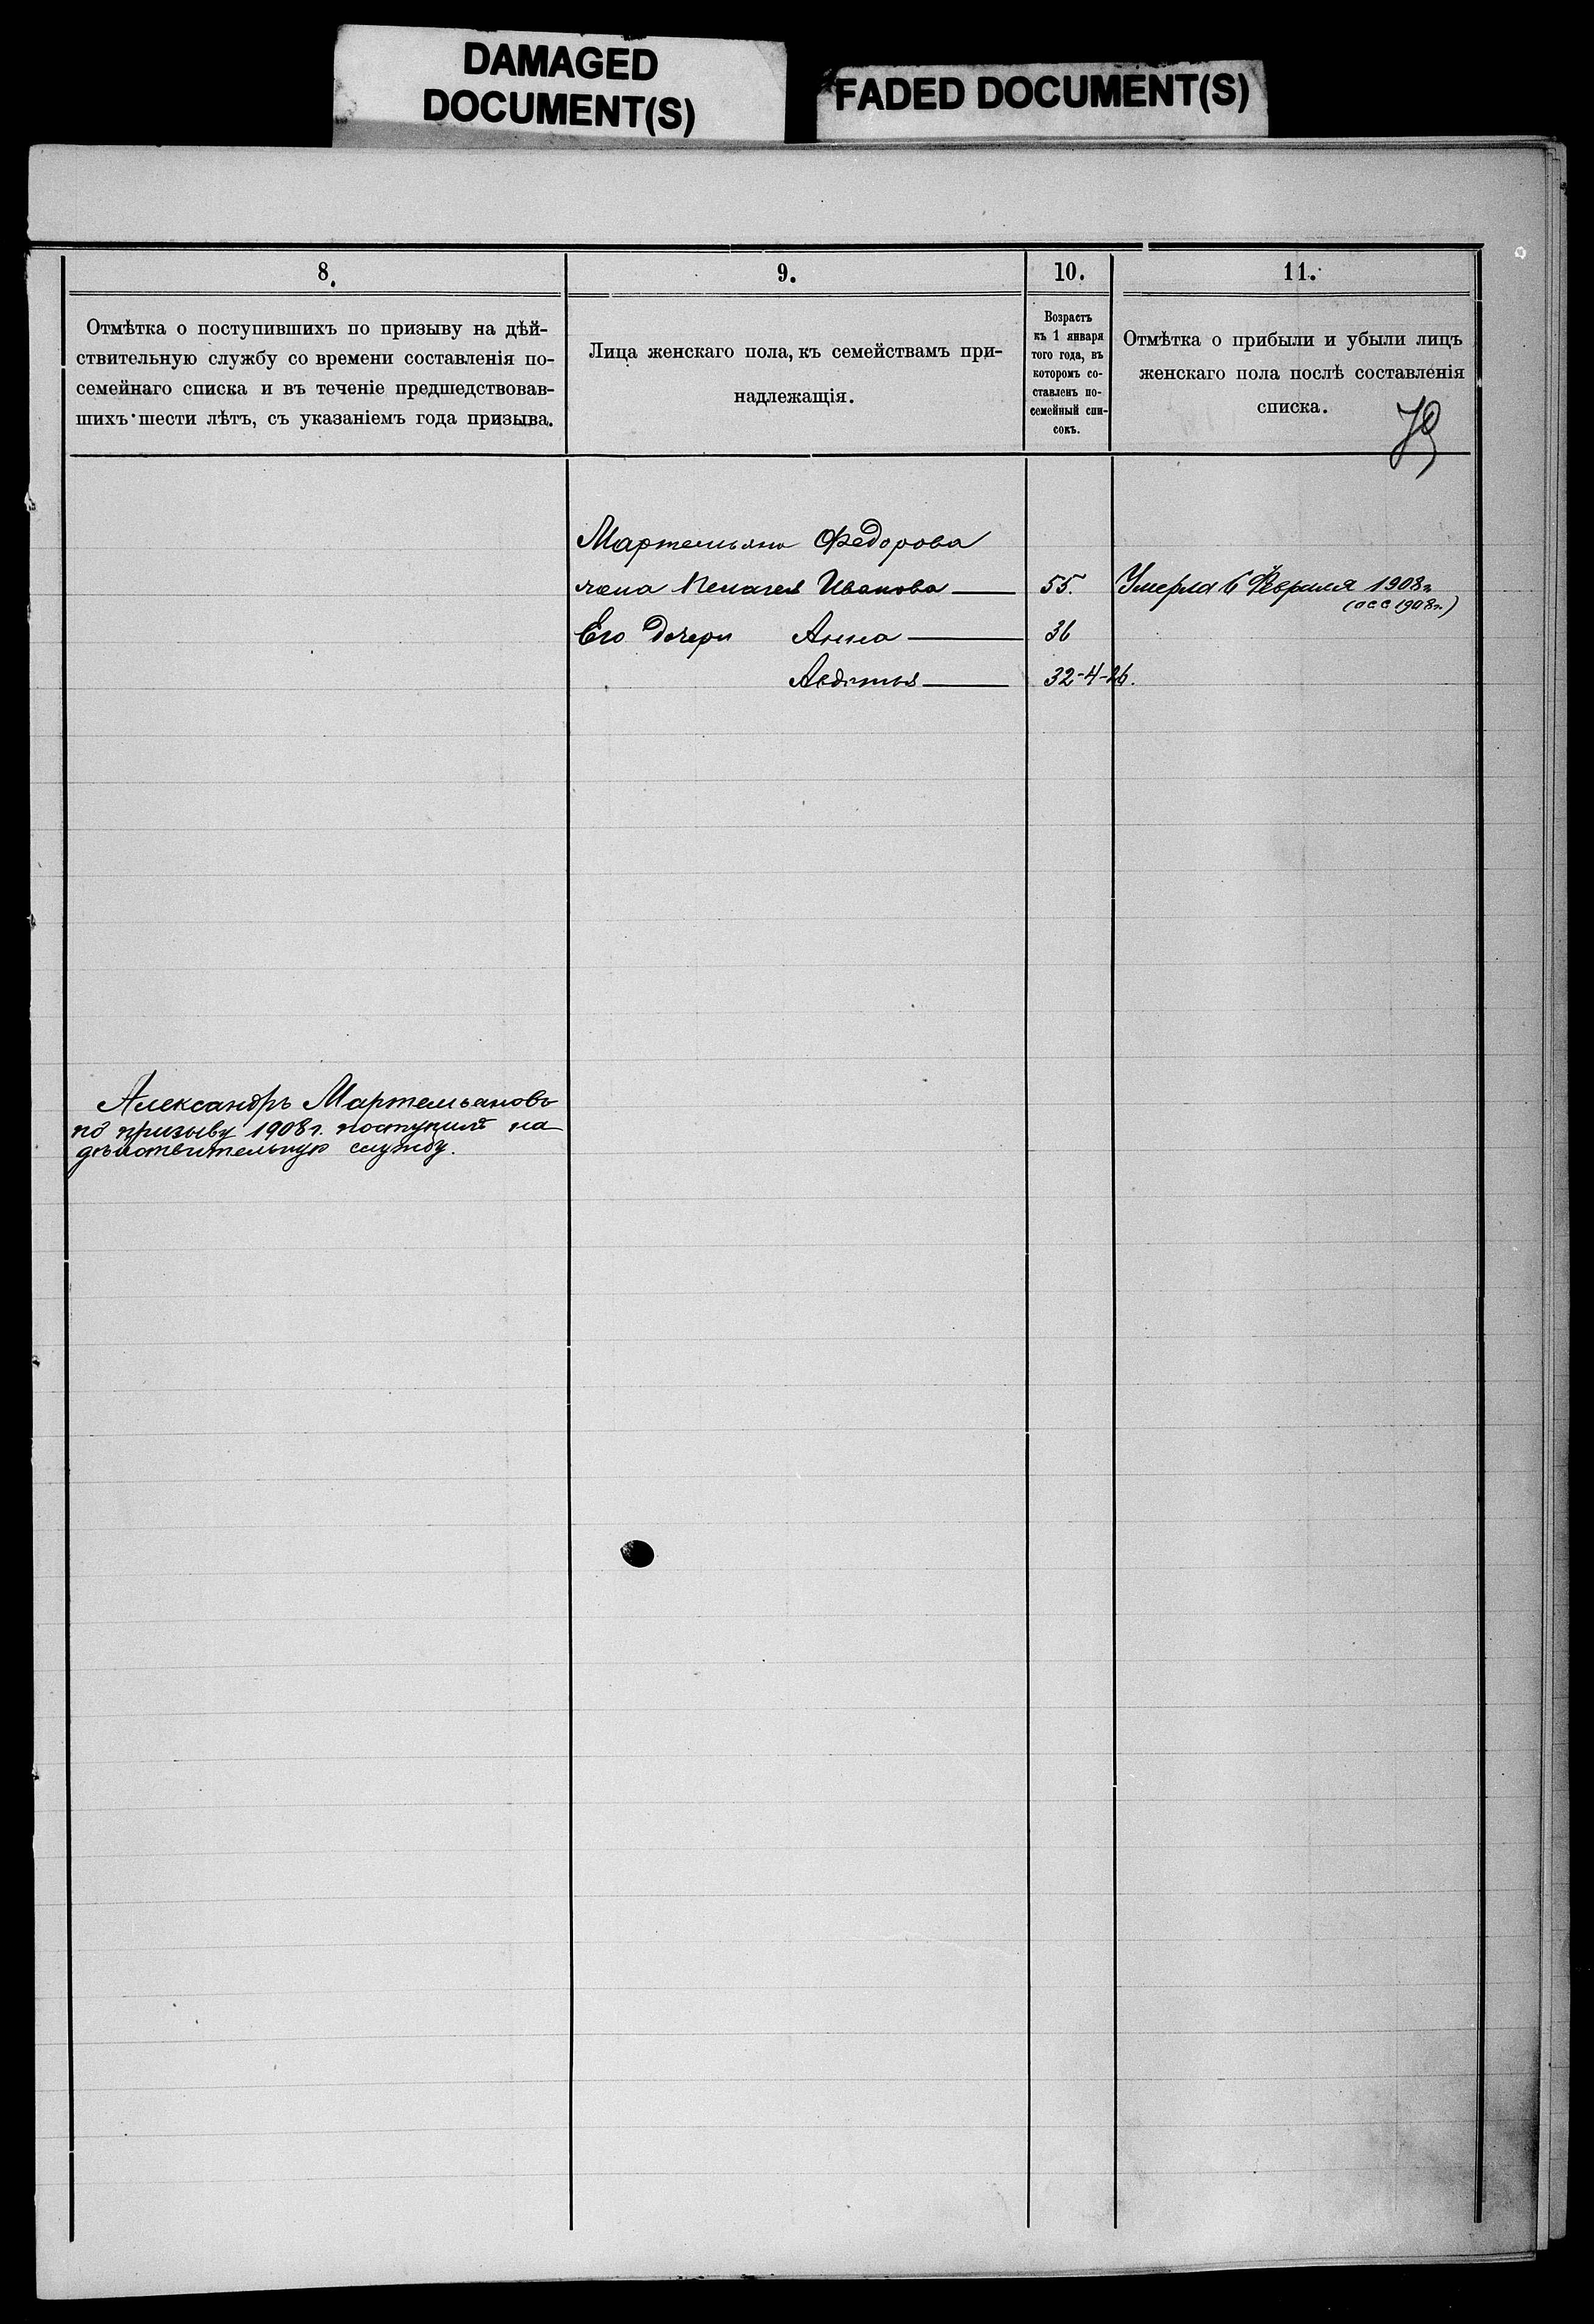 DAMAGED
DOCUMENT(S)
FADED DOCUMENT(S)
8.
Отмѣтка о поступившихъ по призыву на дѣй-
ствительную службу со времени составленія по-
семейнаго списка и въ теченіе предшедствовав-
шихъ шести лѣтъ, съ указаніемъ года призыва.
9.
Лица женскаго пола, къ семействамъ при-
надлежащія.
10.
Возрастъ
къ 1 января
того года, въ
которомъ со-
ставленъ по-
семейный спи-
сокъ.
11.
Отмѣтка о прибыли и убыли лицъ
женскаго пола послѣ составленія
списка.
Мартемьяна Федорова
жена Пелагея Иванова 55. Умерла 6 Февраля 1908 г.
(1908 г.)
Его дочери Анна 36
Авдотья 32-4-26.
Александръ Мартемьановъ
по призыву 1908 г. поступилъ на
дѣйствительную службу.